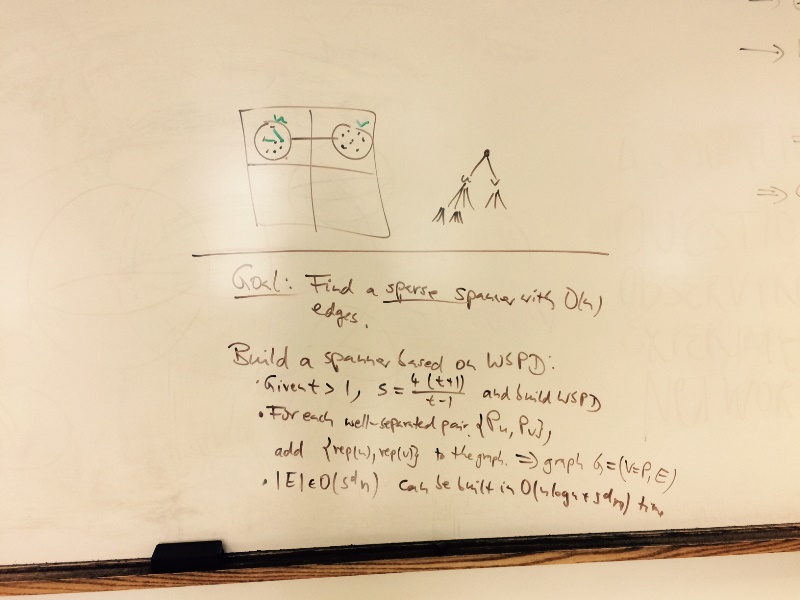 u v
u v
Goal: Find a sparse spanner with O(n)
edges.
Build a spanner based on WSPD:
· Given t > 1, s = 4(t+1)/t-1 and build WSPD
· For each well-separated pair {Pu, Pv},
add {rep(u), rep(v)} to the graph. ⇒ graph G = (V=P, E)
· |E| ∈ O(s^d n) can be built in O(n log n + s^d n) time